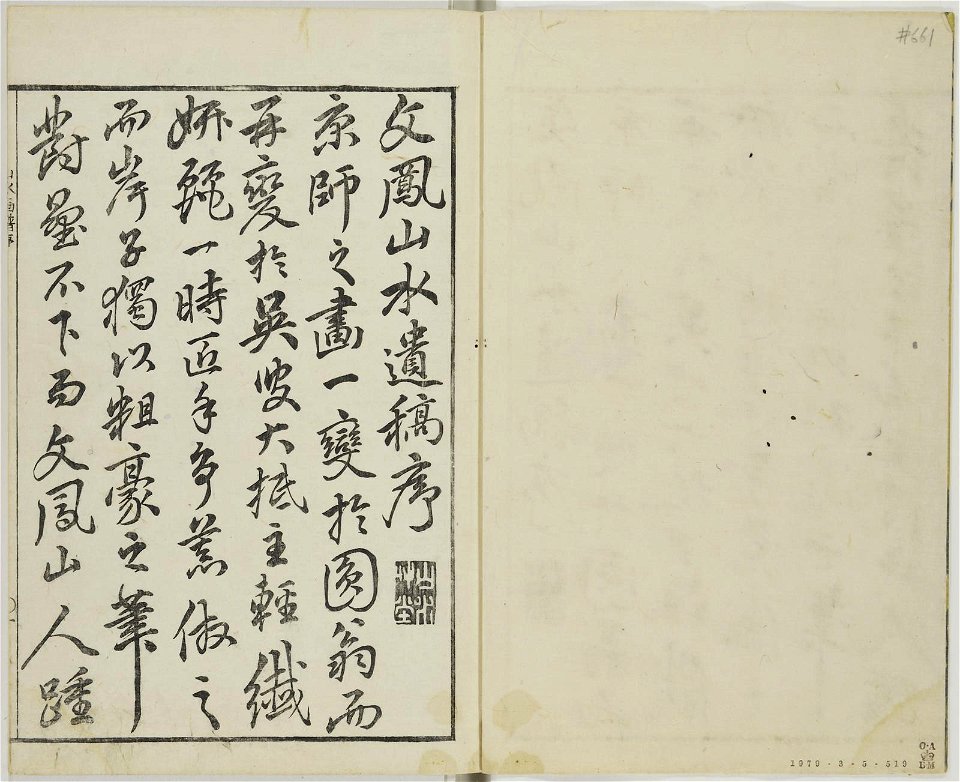 #661
文鳳山水遺稿序
京師之畫一變於圓翁而
再變於吳叟大抵主輕纖
妍麗一時匠手争慕倣之
而岸子獨以粗豪之筆
對壘不下而文鳳山人踵
O·A
BM
1979·3·5·519